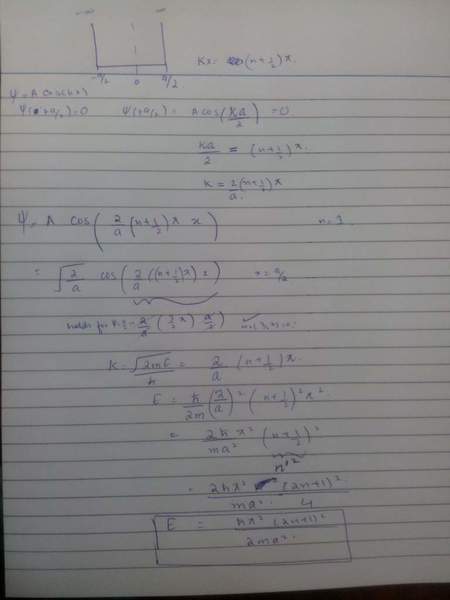 -a/2 0 a/2
Kx = (n+1/2)π.
ψ = A cos(kx)
ψ(±a/2)=0 ψ(+a/2) = A cos(ka/2) = 0
ka/2 = (n+1/2)π.
K = 2/a (n+1/2)π
ψ = A cos(2/a (n+1/2)π x) n=1
= √2/a cos(2/a ((n+1/2)π) x) x = a/2
holds for 2/a (3/2 π) a/2 ✓
K = √2mE/ħ = 2/a (n+1/2)π.
E = ħ/2m (2/a)² (n+1/2)² π²
= 2ħπ²/ma² (n+1/2)²
n'²
= 2ħπ² (2n+1)²/ma² 4
E = ħπ² (2n+1)²/2ma².